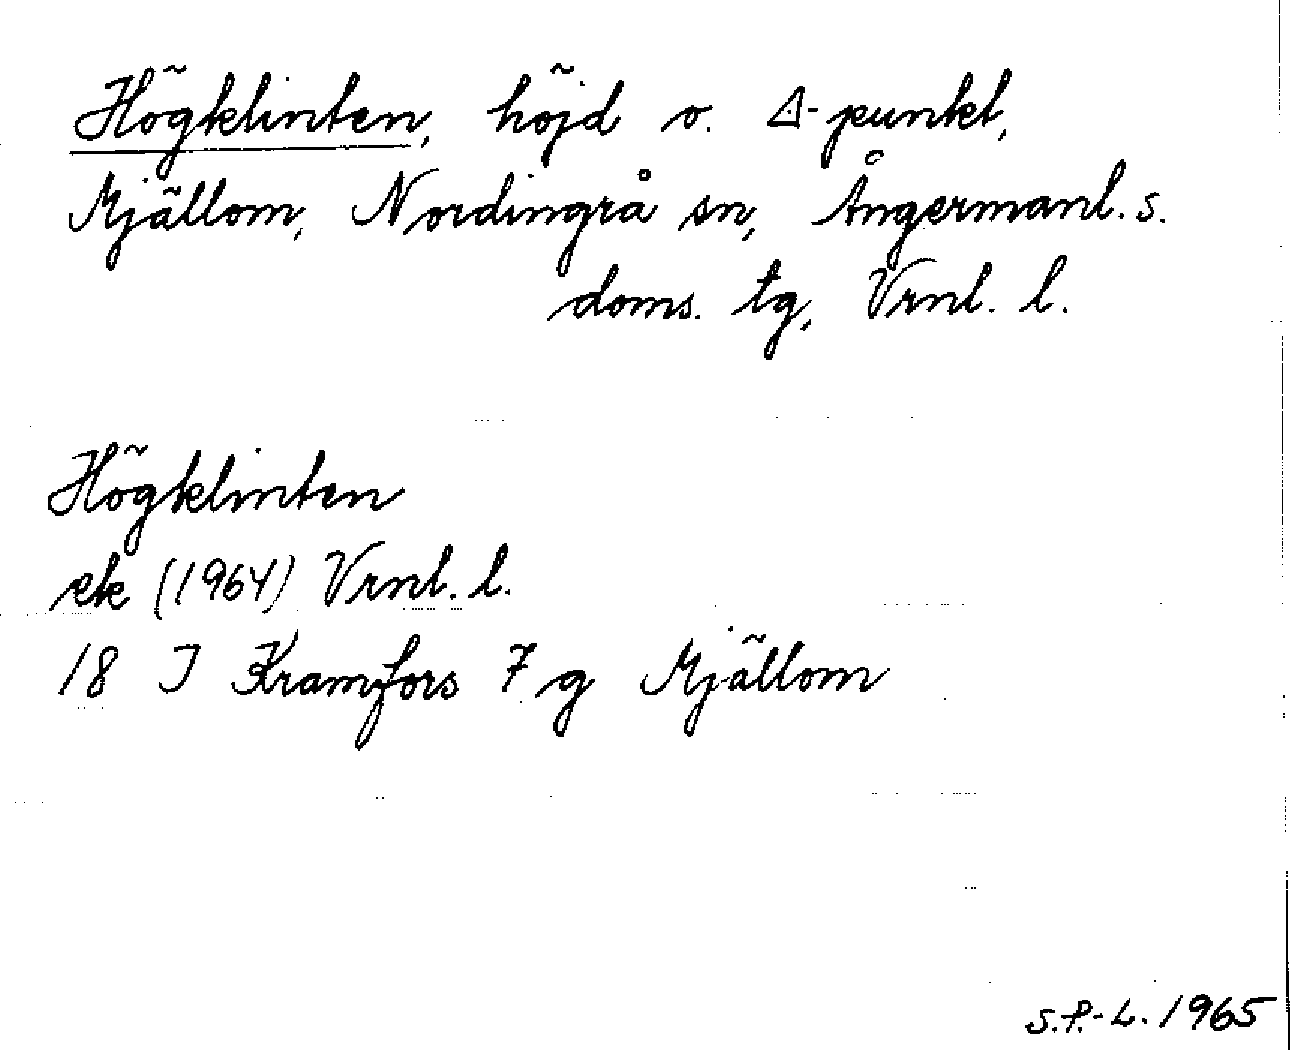 Högklinten, höjd o. △-punkt,
Mjällom, Nordingrå sn, Ångermanl. s.
doms. tg, Vrnl. l.
Högklinten
ek (1964) Vrnl. l.
18 I Kramfors 7 g Mjällom
S.P.-L. 1965